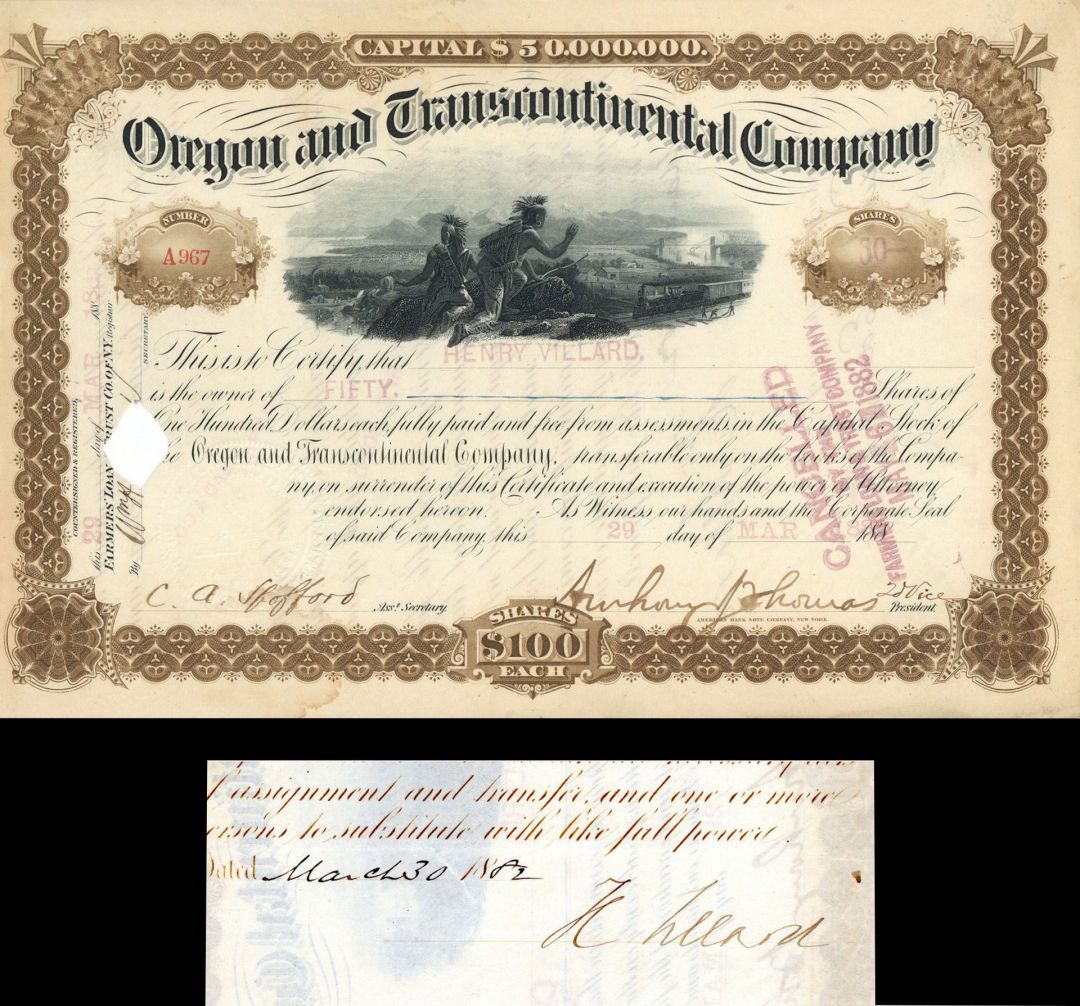 CAPITAL $50.000.000.
Oregon and Transcontinental Company
NUMBER
A967
SHARES
50
This is to Certify, that HENRY VILLARD.
is the owner of FIFTY. Shares of
One Hundred Dollars each, fully paid and free from assessments, in the Capital Stock of
the Oregon and Transcontinental Company, transferable only on the books of the Compa-
ny, on surrender of this Certificate and execution of the power of Attorney
endorsed hereon. As Witness our hands and the Corporate Seal
of said Company, this 29 day of MAR 188
COUNTERSIGNED & REGISTERED,
this 29 day of MAR 188
FARMERS' LOAN TRUST CO. OF N.Y. Registrar
By
SECRETARY.
CANCELLED
BY
FARMERS LOAN TRUST COMPANY
1882
C. A. Spofford Asst. Secretary.
Anthony J Thomas 2d Vice President.
AMERICAN BANK NOTE COMPANY, NEW YORK.
SHARES
$100
EACH
f assignment and transfer, and one or more
ersons to substitute with like full power.
Dated March 30 1882
H Villard